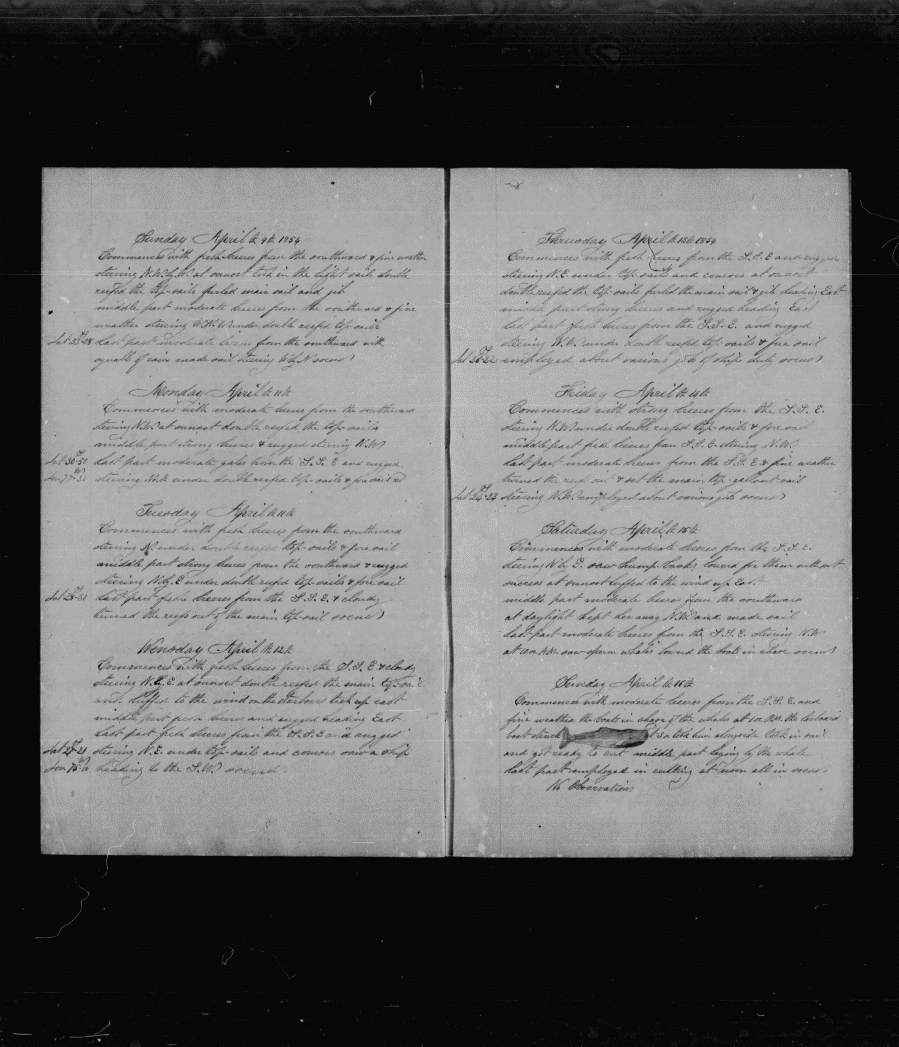 Sunday April th 9th 1854
Commences with fresh breeses from the southward & fine weather
steering N.W. by W. at sunset took in the light sails double
reefed the top-sails furled main sail and jib
middle part moderate breeses from the southward & fine
weather steering under double reefed top-sails
Last part moderate breeses from the southward with
squalls of rain made sail steering W by N so ends
Monday April th
Commences with moderate breeses from the southward
steering N.W. at sunset double reefed the top-sails
middle part strong breeses & rugged steering N.W.
Last part moderate gales from the S.S.E and rugged
steering under double reefed top-sails & fore sail
Tuesday April th 11th
Commences with fresh breeses from the southward
steering N. under double reefed top-sails & fore sail
middle part strong breeses from the southward & rugged
steering N by E under double reefed top-sails & fore sail
Last part fresh breeses from the S.S.E. & cloudy
turned the reefs out of the main top-sail so ends
Wensday April th 12th
Commences with fresh breeses from the S.S.E & cloudy
steering N. by E. at sunset double reefed the main top-sail
and luffed to the wind on the starboard tack up east
middle part fresh breeses and rugged heading East
Last part fresh breeses from the S.S.E and rugged
steering N.E. under top-sails and courses saw a ship
heading to the S.W. so ends
Thursday April th 13th 1854
Commences with fresh breeses from the S.S.E and rugged
steering N.E under top-sails and courses at sunset
double reefed the top-sails furled the main sail & jib heading East
middle part strong breeses and rugged heading East
Last part fresh breeses from the S.S.E. and rugged
steering under double reefed top-sails & fore sail
Lat employed about various jobs of ships duty so ends
Friday April th 14th
Commences with strong breeses from the S.S.E.
steering N.W. under double reefed top-sails & fore sail
middle part fresh breeses from S.S.E. steering N.W.
Last part moderate breeses from the S.S.E & fine weather
turned the reefs out & set the main top-gallant sail
steering N.W. employed about various jobs so ends
Saturday April th 15th
Commences with moderate breeses from the S.S.E.
steering N by E. saw hump backs lowered for them without
success at sunset luffed to the wind up East
middle part moderate breeses from the southward
at daylight kept her away N.W. and made sail
Last part moderate breeses from the S.S.E. steering N.W
at 10 A.M. saw sperm whales lowered the boats in chase so ends
Sunday April th 16th
Commences with moderate breeses from the S.S.E. and
fine weather the boats in chase of the whales at 1 P.M. the larboard
boat struck at 3 took him alongside took in sail
and got ready to cut middle part laying by the whale
Last part employed in cutting at noon all in so ends
No Observations